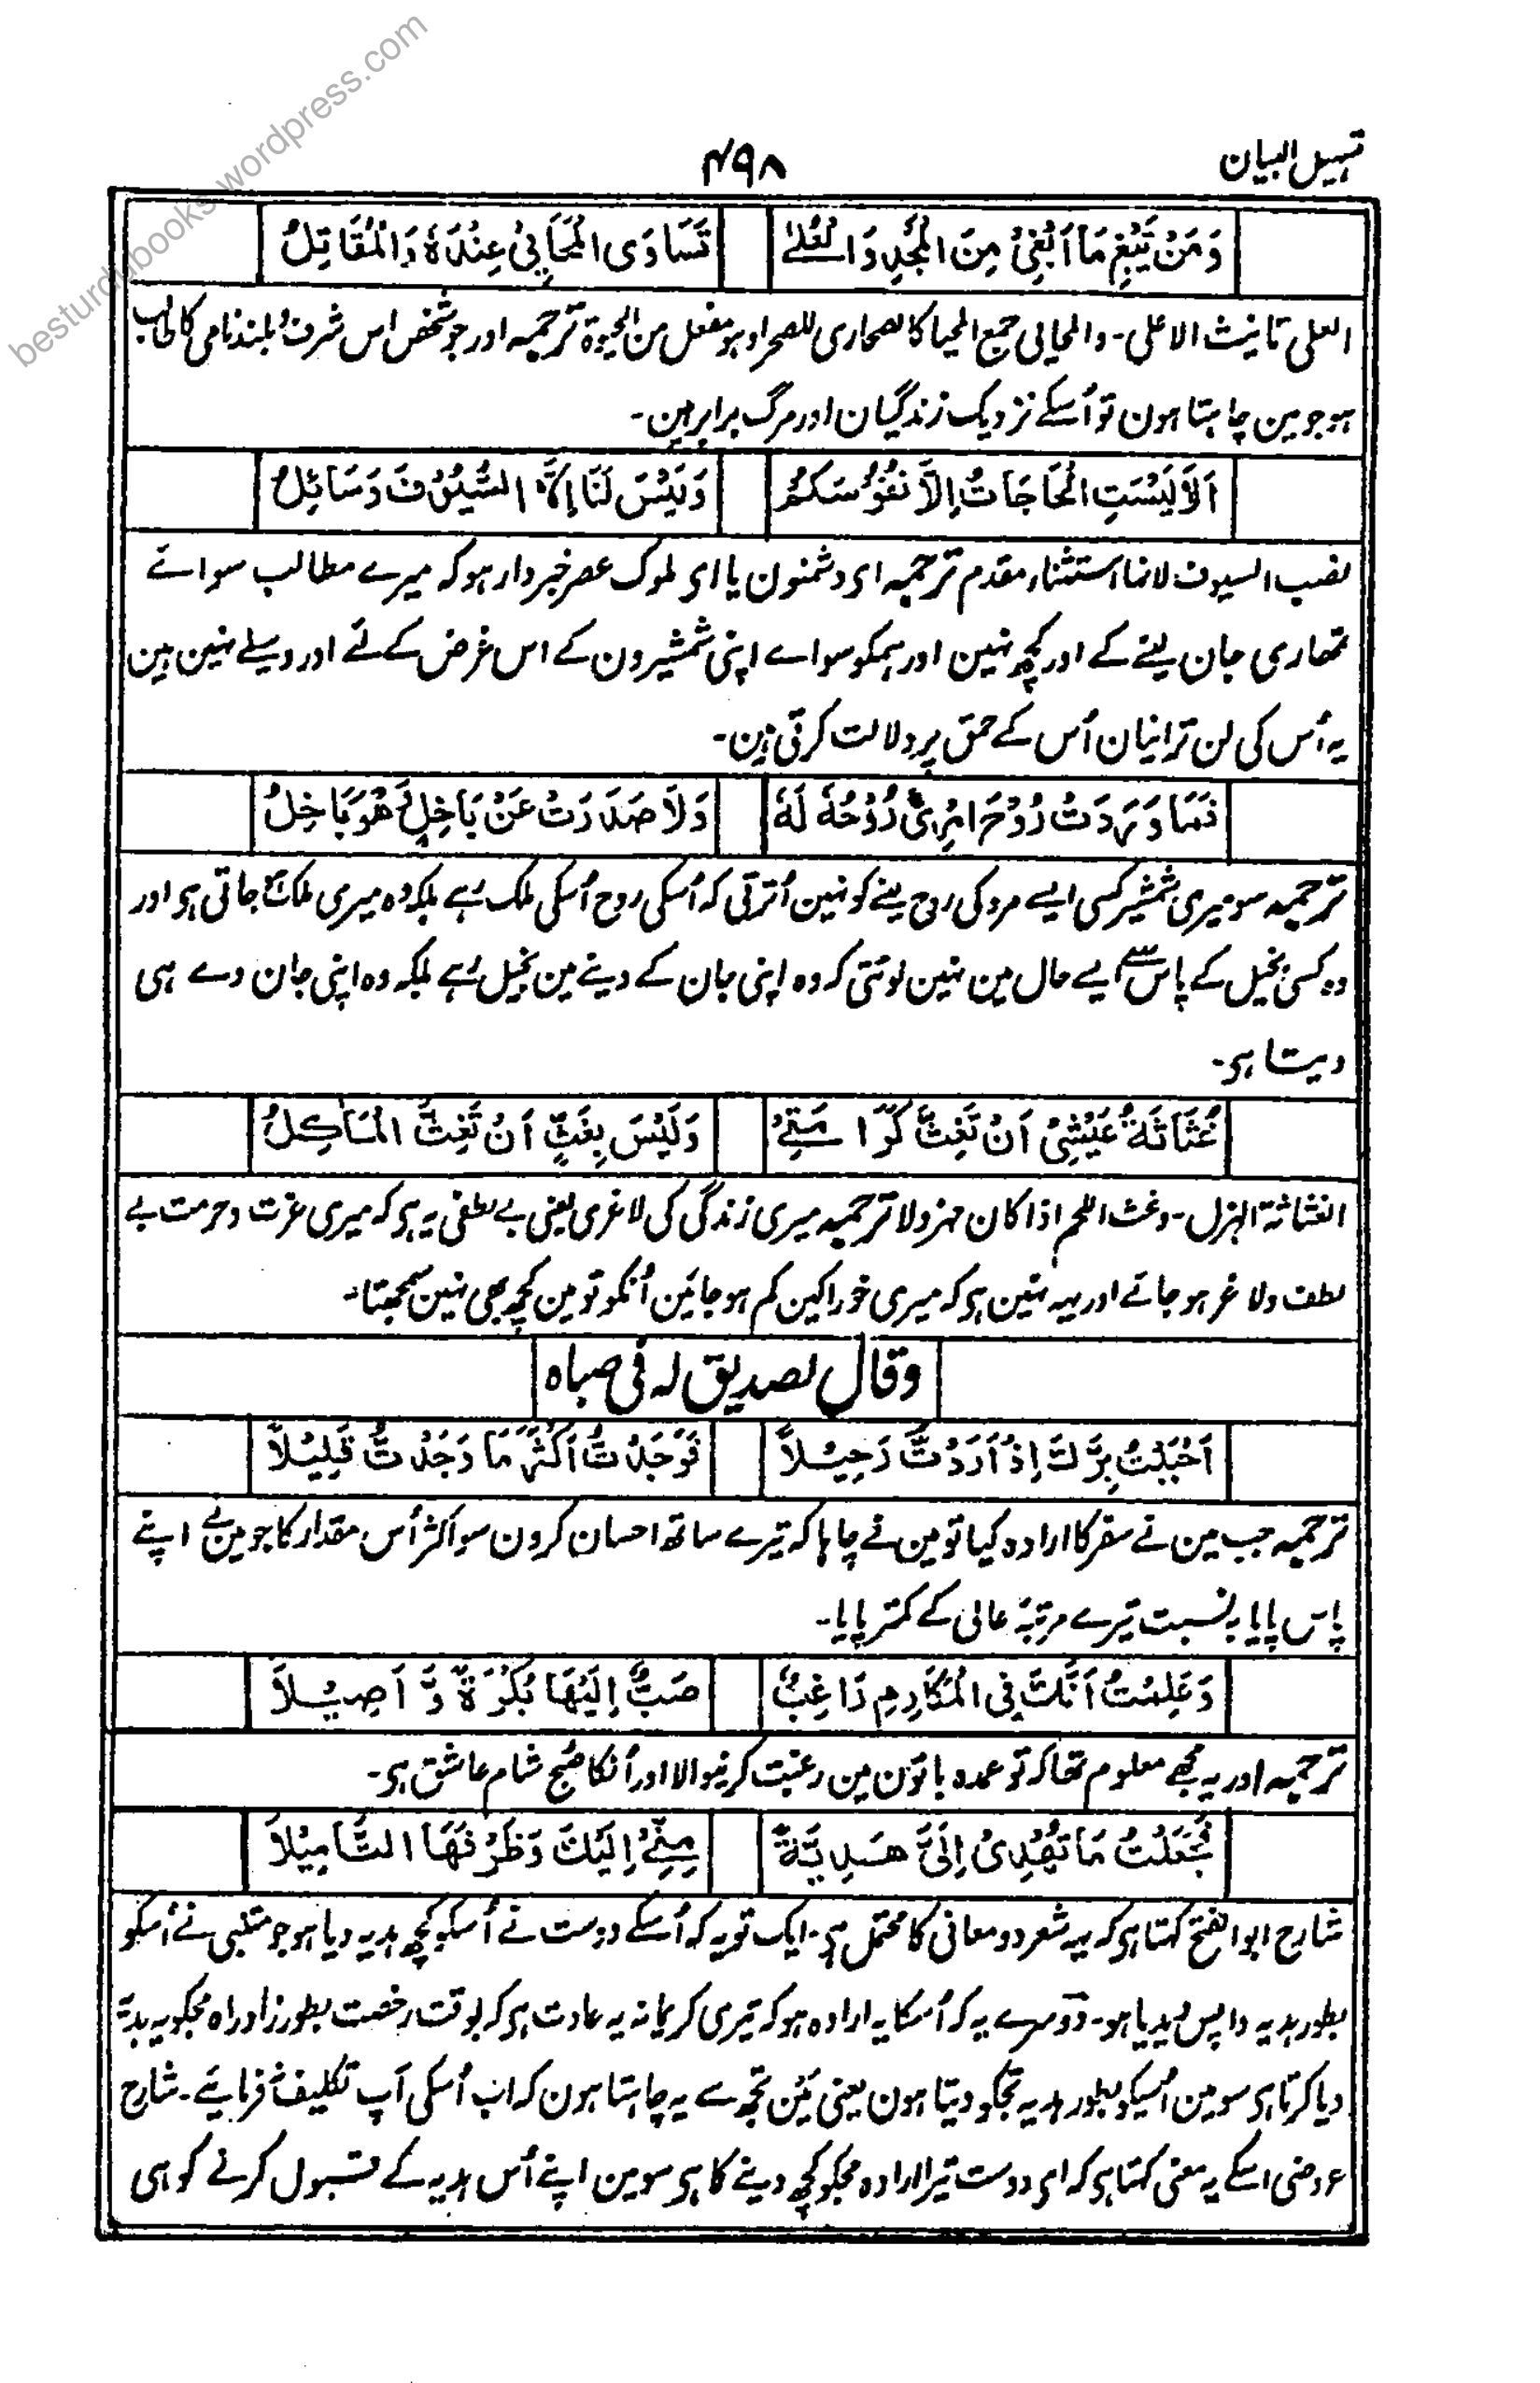 besturdubooks.wordpress.com
تسہیل البیان
۴۹۸
وَمَنْ یَّبْغِ مَا اَبْغِیْ مِنَ الْمَجْدِ وَالْعُلیٰ تَسَاوَی الْمَحَایِیْ عِنْدَهٗ وَالْمَقَاتِلُ
العلی تانیث الاعلی۔ والمحایی جمع المحیا کالصحاری للصحراء وہو مفعل من الحیوة ترجمہ اور جو شخص اس شرف و بلند نامی کا طالب
ہو جو مین چاہتا ہون تو اُسکے نزدیک زندگیان اور مرگ برابر ہین۔
اَلَا لَیْسَتِ الْحَاجَاتُ اِلَّا نُفُوْسَکُمْ وَلَیْسَ لَنَا اِلَّا السُّیُوْفَ وَسَائِلُ
نصب السیوف لانہا استثناء مقدم ترجمہ ای دشمنون یا ای ملوک عصر خبردار ہو کہ میرے مطالب سواے
تمھاری جان لینے کے اور کچھ نہین اور ہمکو سواے اپنی شمشیرون کے اس غرض کے لئے اور وسیلے نہین ہین
یہ اُس کی لن ترانیان اُس کے حمق پر دلالت کرتی ہین۔
فَمَا وَرَدَتْ رُوْحَ امْرِئٍ رُوْحُهٗ لَهٗ وَلَا صَدَرَتْ عَنْ بَاخِلٍ وَّهُوَ بَاخِلُ
ترجمہ سو میری شمشیر کسی ایسے مرد کی روح لینے کو نہین اُترتی کہ اُسکی روح اُسکی ملک رہے بلکہ وہ میری ملک ہو جاتی ہی اور
وہ کسی بخیل کے پاس سے ایسے حال مین نہین لوٹتی کہ وہ اپنی جان کے دینے مین بخیل رہے بلکہ وہ اپنی جان دے ہی
دیتا ہی۔
غَثَاثَةُ عَیْشِیْ اَنْ تَغِثَّ کَرَامَتِیْ وَلَیْسَ بِغَثٍّ اَنْ تَغِثَّ الْمَاٰکِلُ
الغثاثة الہزل۔ وغث اللحم اذا کان مہزولا ترجمہ میری زندگی کی لاغری یعنی بے لطفی یہ ہی کہ میری عزت و حرمت بے
لطف و لاغر ہو جائے اور یہہ نہین ہی کہ میری خوراکین کم ہو جائین اُنکو تو مین کچھ بھی نہین سمجھتا۔
وقال لصدیق لہ فی صباہ
اَحْبَبْتُ بِرَّكَ اِذْ اَرَدْتُّ رَحِیْلَاً فَوَجَدْتُّ اَکْثَرَ مَا وَجَدْتُّ قَلِیْلَاً
ترجمہ جب مین نے سفر کا ارادہ کیا تو مین نے چاہا کہ تیرے ساتھ احسان کرون سو اکثر اُس مقدار کا جو مین نے اپنے
پاس پایا بہ نسبت تیرے مرتبۂ عالی کے کمتر پایا۔
وَعَلِمْتُ اَنَّكَ فِی الْمَکَارِمِ رَاغِبٌ صَبٌّ اِلَیْهَا بُکْرَةً وَّ اَصِیْلَاً
ترجمہ اور یہ مجھے معلوم تھا کہ تو عمدہ باتون مین رغبت کرنیوالا اور اُنکا صبح شام عاشق ہی۔
فَجَعَلْتُ مَا تُهْدِیْ اِلَیَّ هَدِیَّةً مِنِّیْ اِلَیْكَ وَظَرْفَهَا التَّامِیْلَاً
شارح ابو الفتح کہتا ہی کہ یہہ شعر دو معانی کا محتمل ہی۔ ایک تو یہ کہ اُسکے دوست نے اُسکو کچھ ہدیہ دیا ہو جو متنبی نے اُسکو
بطور ہدیہ واپس دیدیا ہو۔ دوسرے یہ کہ اُسکا یہ ارادہ ہو کہ تیری کریمانہ یہ عادت ہی کہ بوقت رخصت بطور زاد راہ مجکو یہ ہدیہ
دیا کرتا ہی سو مین اُسیکو بطور ہدیہ تجکو دیتا ہون یعنی مین تجھ سے یہ چاہتا ہون کہ اب اُسکی آپ تکلیف نہ فرمایئے۔ شارح
عروضی اسکے یہ معنی کہتا ہی کہ ای دوست تیرا ارادہ مجکو کچھ دینے کا ہی سو مین اپنے اُس ہدیہ کے قبول کرنے کو ہی